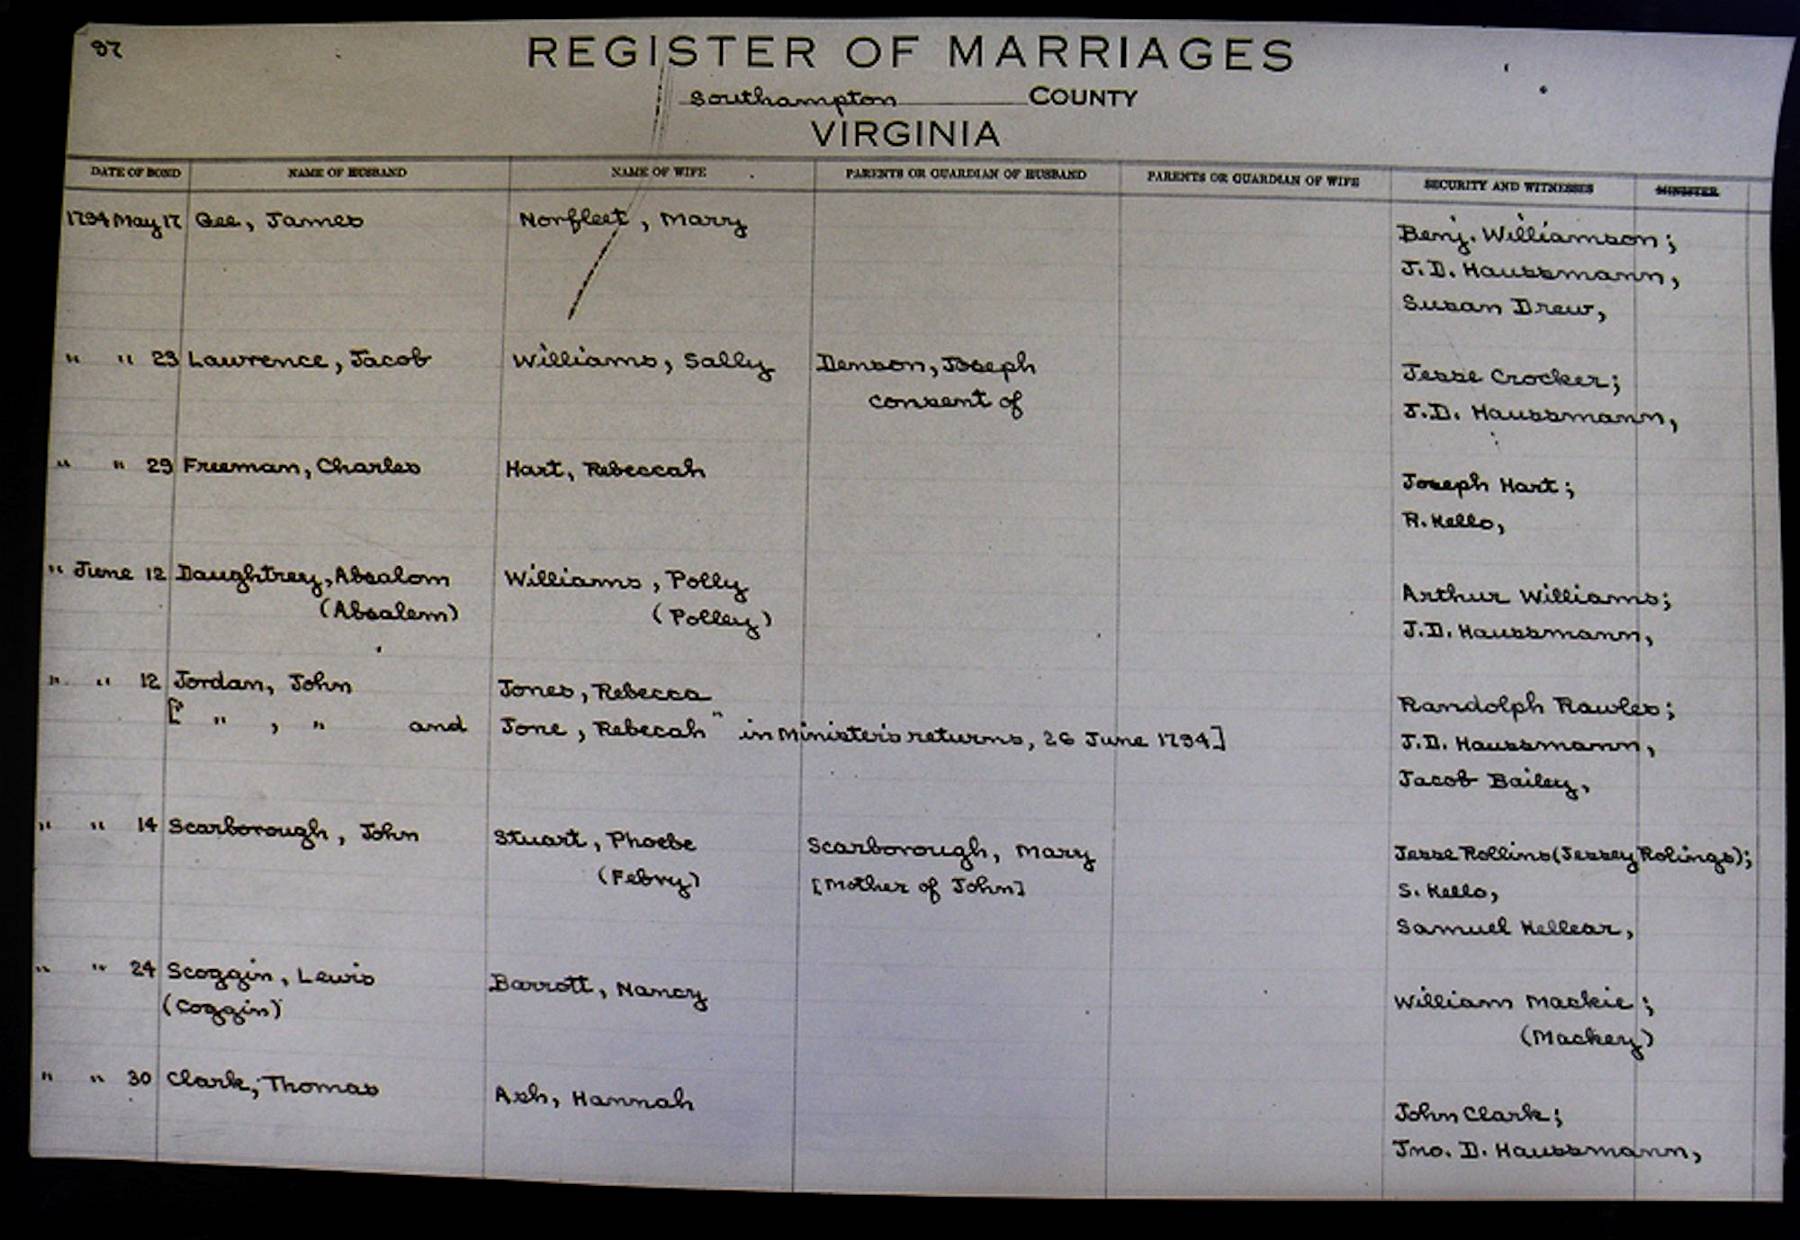 97
REGISTER OF MARRIAGES
Southampton COUNTY
VIRGINIA
DATE OF BOND NAME OF HUSBAND NAME OF WIFE PARENTS OR GUARDIAN OF HUSBAND PARENTS OR GUARDIAN OF WIFE SECURITY AND WITNESSES MINISTER
1794 May 17 Gee, James Norfleet, Mary Benj. Williamson;
J.D. Haussmann,
Susan Drew,
" " 23 Lawrence, Jacob Williams, Sally Denson, Joseph Jesse Crocker;
consent of J.D. Haussmann,
" " 29 Freeman, Charles Hart, Rebeccah Joseph Hart;
R. Kello,
" June 12 Daughtrey, Absalom Williams, Polly Arthur Williams;
(Absalem) (Polley) J.D. Haussmann,
" " 12 Jordan, John Jones, Rebecca Randolph Rawles;
[" " , " and Jone, Rebecah" in Minister's returns, 26 June 1794] J.D. Haussmann,
Jacob Bailey,
" " 14 Scarborough, John Stuart, Phoebe Scarborough, Mary Jesse Rollins (Jessey Rolings);
(Febry) [Mother of John] S. Kello,
Samuel Kellear,
" " 24 Scoggin, Lewis Barrott, Nancy William Mackie;
(Coggin) (Mackey)
" " 30 Clark, Thomas Ash, Hannah John Clark;
Jno. D. Haussmann,